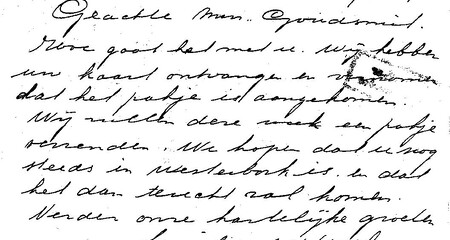 Geachte Mevr. Goudsmit.
Hoe gaat het met u. Wij hebben
uw kaart ontvangen en vernomen
dat het pakje is aangekomen.
Wij zullen deze week een pakje
verzenden. We hopen dat u nog
steeds in Westerbork is. en dat
het dan terecht zal komen.
Verder onze hartelijke groeten